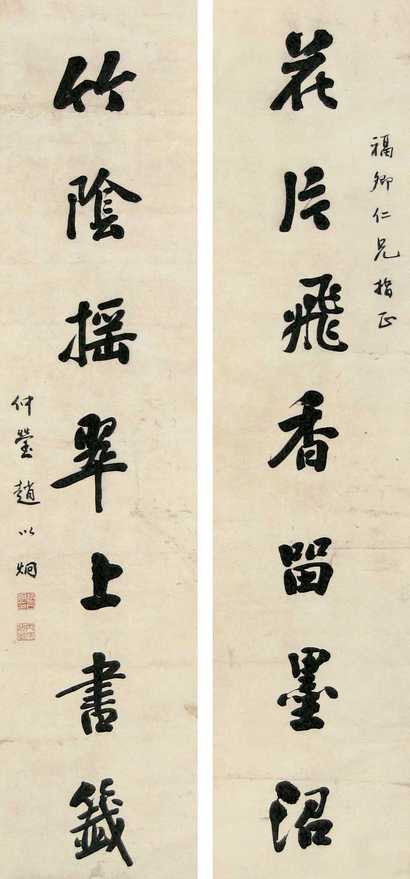 福卿仁兄指正
花片飛香留墨沼
竹陰摇翠上書籤
仲瑩趙以炯